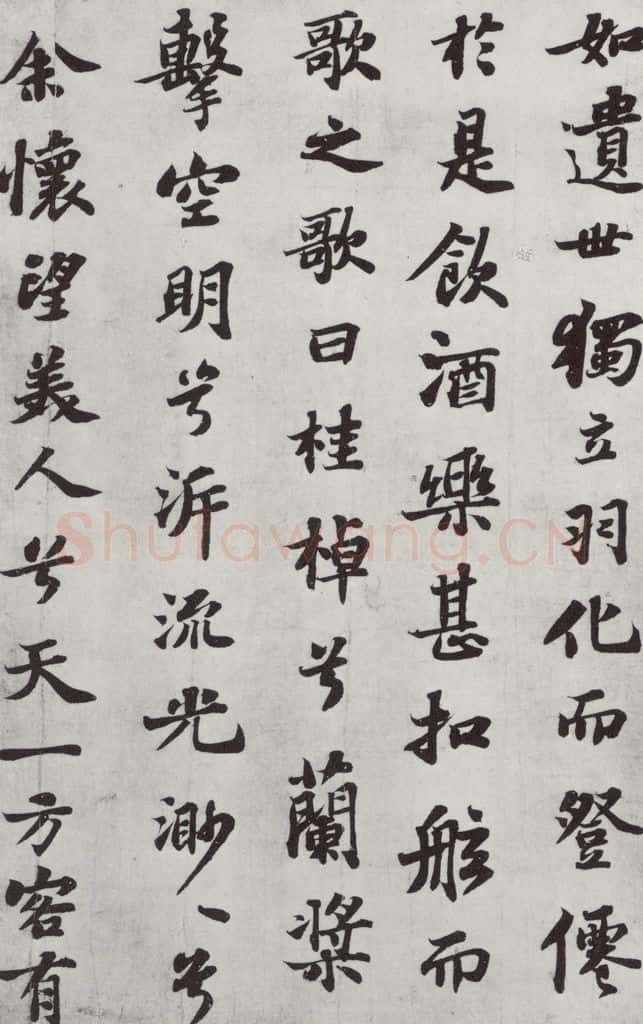 如遺世獨立羽化而登僊
於是飲酒樂甚扣舷而
歌之歌曰桂棹兮蘭槳
擊空明兮泝流光渺〻兮
余懷望美人兮天一方客有
Shufawang.CN